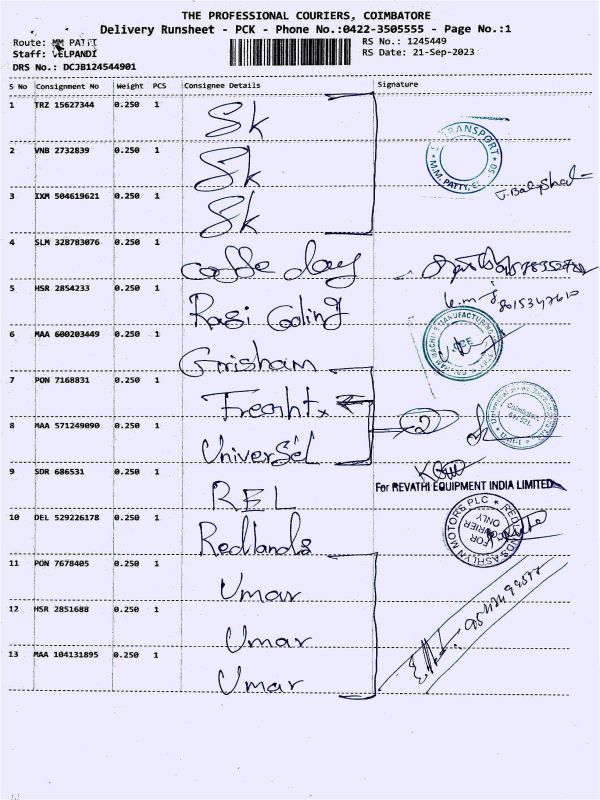 THE PROFESSIONAL COURIERS, COIMBATORE
Delivery Runsheet - PCK - Phone No.:0422-3505555 - Page No.:1
Route: MM PATTI
RS No.: 1245449
Staff: VELPANDI
RS Date: 21-Sep-2023
DRS No.: DCJB124544901
S No Consignment No Weight PCS Consignee Details Signature
1 TRZ 15627344 0.250 1 Sk
2 VNB 2732839 0.250 1 Sk
3 IXM 504619621 0.250 1 Sk
4 SLM 328783076 0.250 1 coffee day
5 HSR 2854233 0.250 1 Ragi Cooling
6 MAA 600203449 0.250 1 Grisham
7 PON 7168831 0.250 1 Freaht
8 MAA 571249090 0.250 1 Universel
2
9 SDR 686531 0.250 1 REL
For REVATHI EQUIPMENT INDIA LIMITED
10 DEL 529226178 0.250 1 Redlands
REDLANDS ASHLYN MOTORS PLC
FOR COURIER ONLY
11 PON 7678405 0.250 1 Umar
12 HSR 2851688 0.250 1 Umar
13 MAA 104131895 0.250 1 Umar